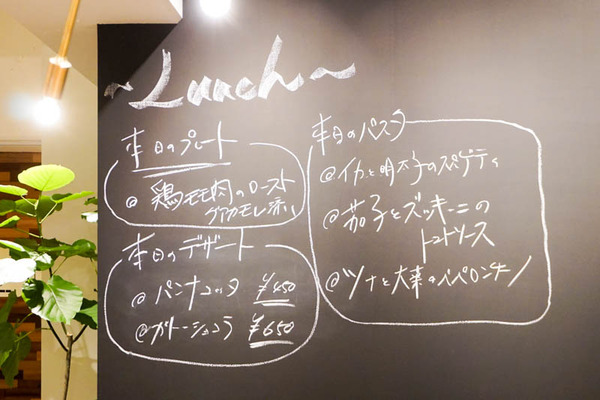 ~Lunch~
本日のプレート
@ 鶏モモ肉のロースト
グアカモレ添え
本日のデザート
@ パンナコッタ ¥450
@ガトーショコラ ¥650
本日のパスタ
@イカと明太子のスパゲティ
@茄子とズッキーニの
トマトソース
@ツナと大葉のペペロンチーノ